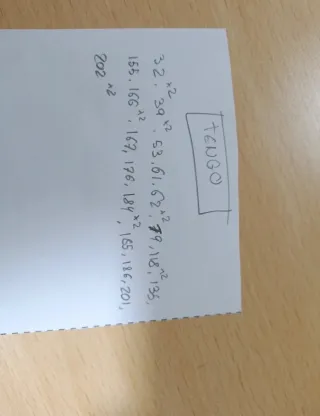 TENGO
32x2, 39x2, 53, 61, 62x2, 79, 118x2, 135,
155, 166x2, 167, 176, 184x2, 185, 186, 201,
202x2